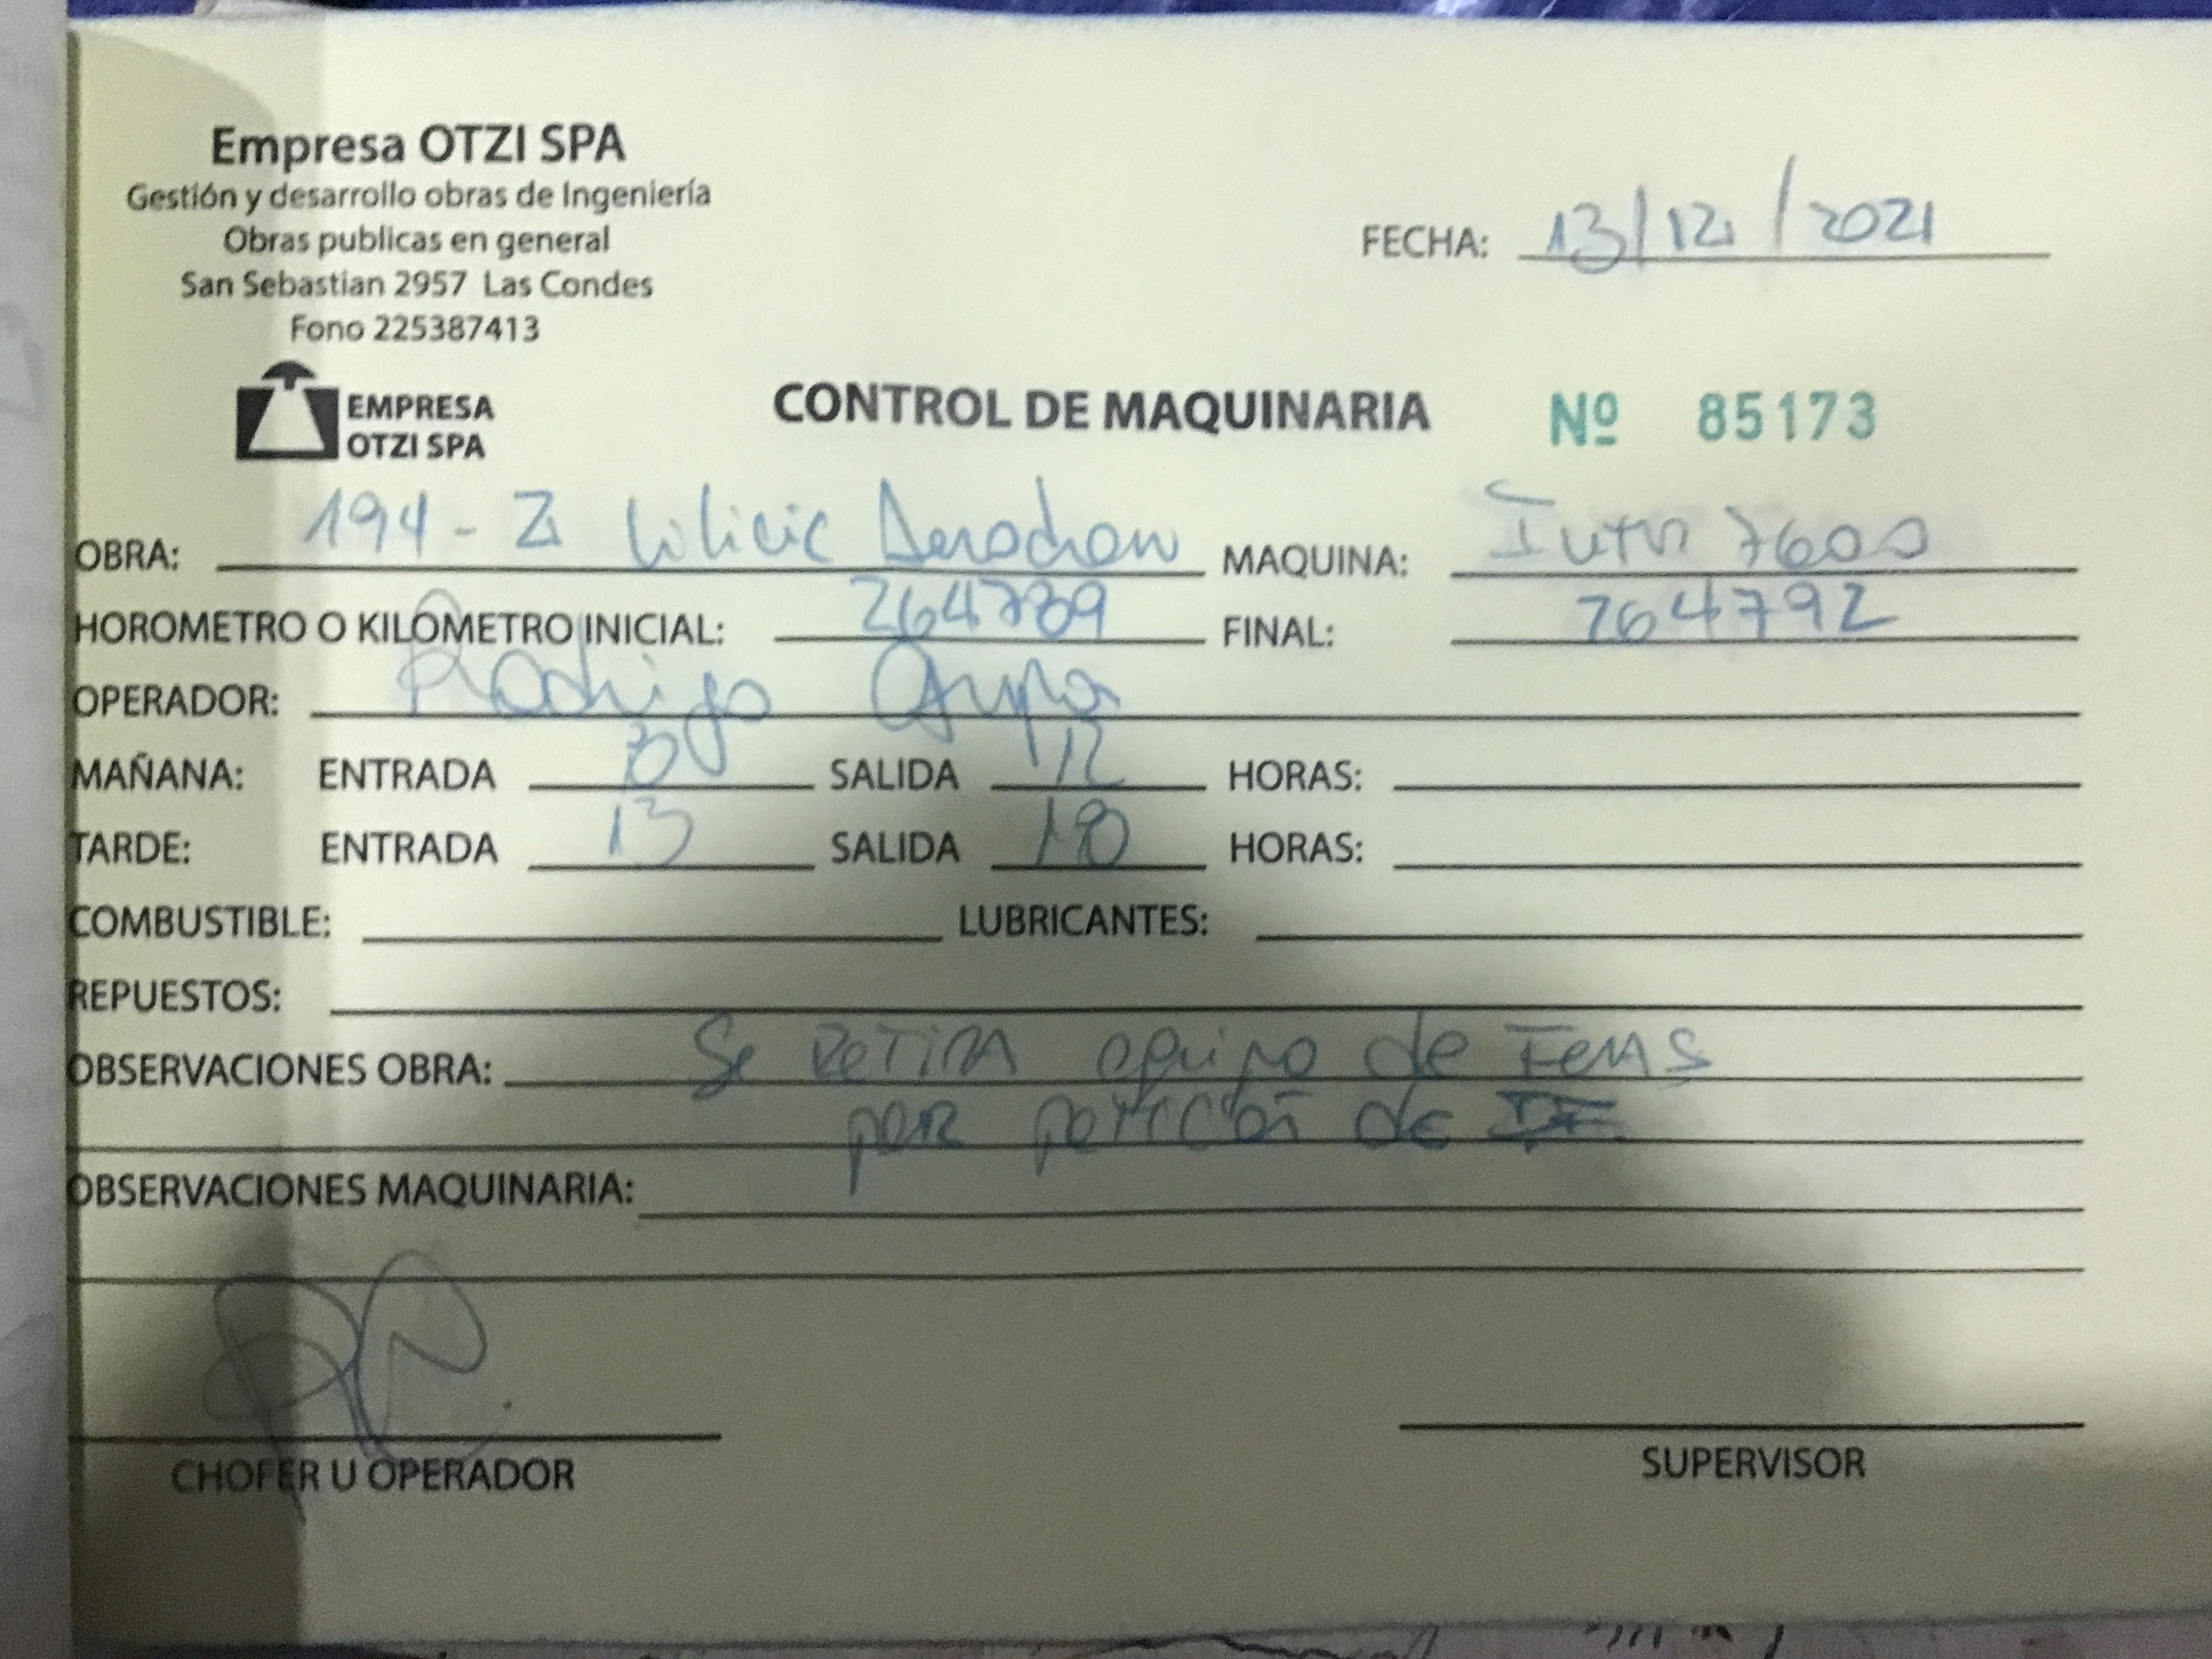 Empresa OTZI SPA
Gestión y desarrollo obras de Ingeniería
Obras publicas en general
San Sebastian 2957 Las Condes
Fono 225387413
FECHA: 13/12/2021
EMPRESA
OTZI SPA
CONTROL DE MAQUINARIA Nº 85173
OBRA: 194-2 MAQUINA:
HOROMETRO O KILOMETRO INICIAL: 2647789 FINAL: 7647792
OPERADOR: Rodrigo
MAÑANA: ENTRADA SALIDA 12 HORAS:
TARDE: ENTRADA 13 SALIDA 18 HORAS:
COMBUSTIBLE: LUBRICANTES:
REPUESTOS:
OBSERVACIONES OBRA: Se retira equipo de
por petición de
OBSERVACIONES MAQUINARIA:
CHOFER U OPERADOR SUPERVISOR